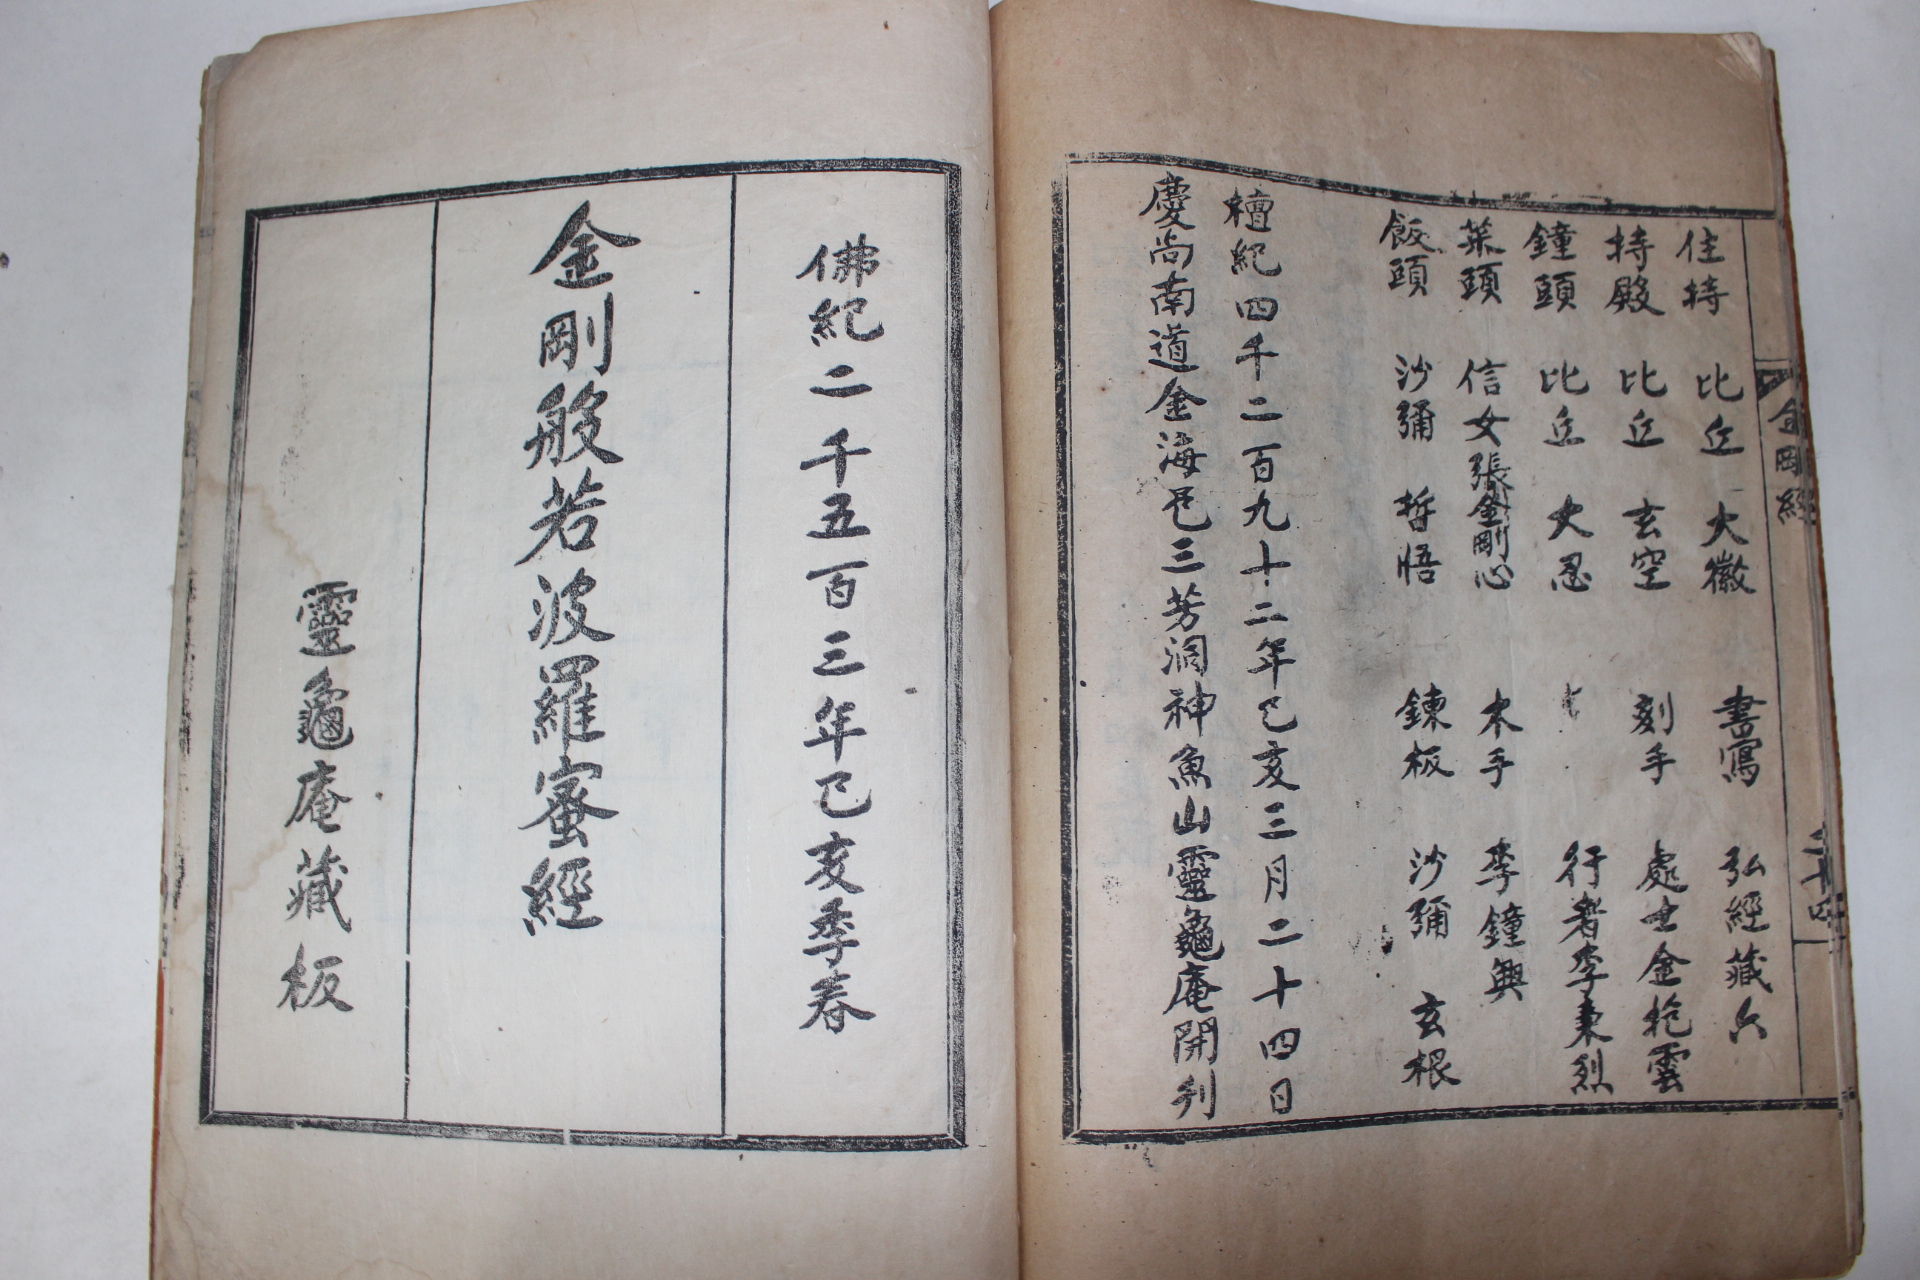 金剛經
二十四
住持 比丘 大徽 書寫 弘經藏六
持殿 比丘 玄空 刻手 處士金抱雲
鐘頭 比丘 大忍 行者李秉烈
菜頭 信女張金剛心 木手 李鐘興
飯頭 沙彌 哲悟 鍊板 沙彌 玄根
檀紀四千二百九十二年己亥三月二十四日
慶尚南道金海邑三芳洞神魚山靈龜庵開刋
佛紀二千五百三年己亥季春
金剛般若波羅蜜經
靈龜庵藏板